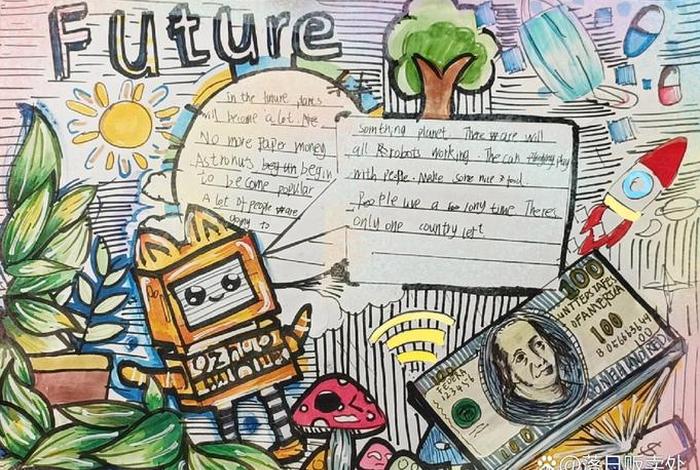 Future
In the future plants
will become a lot.
No more Paper money
Astronuts begun begin
to be come popular
A lot of people are
going to
Somthing planet. There are will
all Robots working. The can play
with people. Make some nice food.
People live a long time. Theres
only one country left
100
UNITED STATES
OF AMERICA
100
100